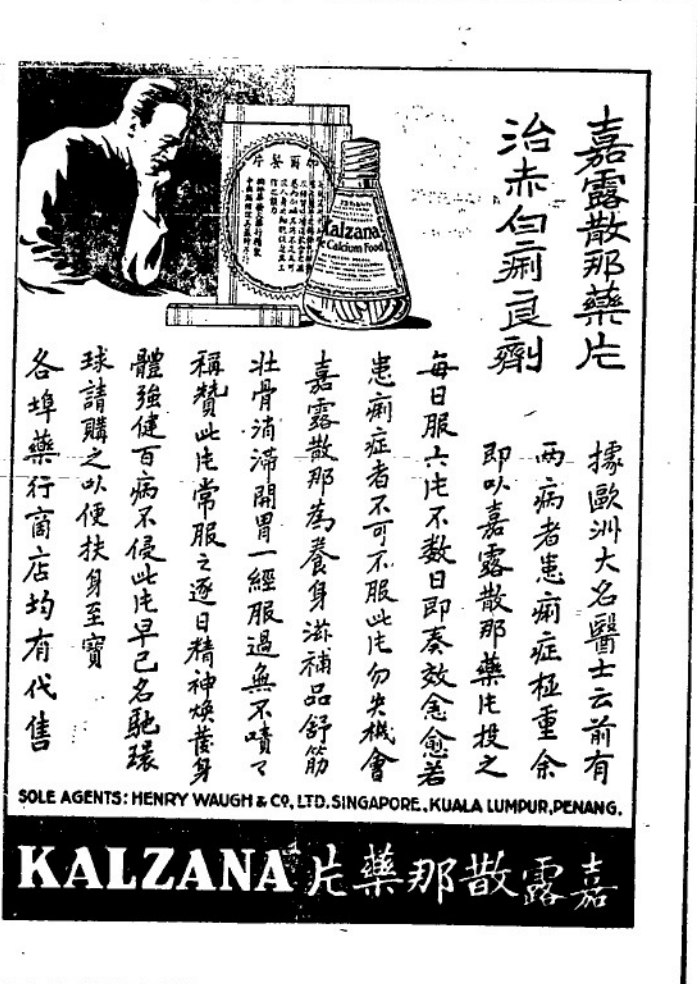 嘉露散那藥片
治赤白痢良劑
據歐洲大名醫士云前有
兩病者患痢症極重余
即以嘉露散那藥片投之
每日服六片不数日即奏效愈愈若
患痢症者不可不服此片勿失機會
嘉露散那為養身滋補品舒筋
壯骨消滯開胃一經服過無不嘖々
稱贊此片常服之逐日精神煥發身
體強健百病不侵此片早已名馳環
球請購之以便扶身至寶
各埠藥行商店均有代售
Kalzana
Calcium Food
SOLE AGENTS: HENRY WAUGH & CO, LTD. SINGAPORE, KUALA LUMPUR, PENANG.
KALZANA 片藥那散露嘉